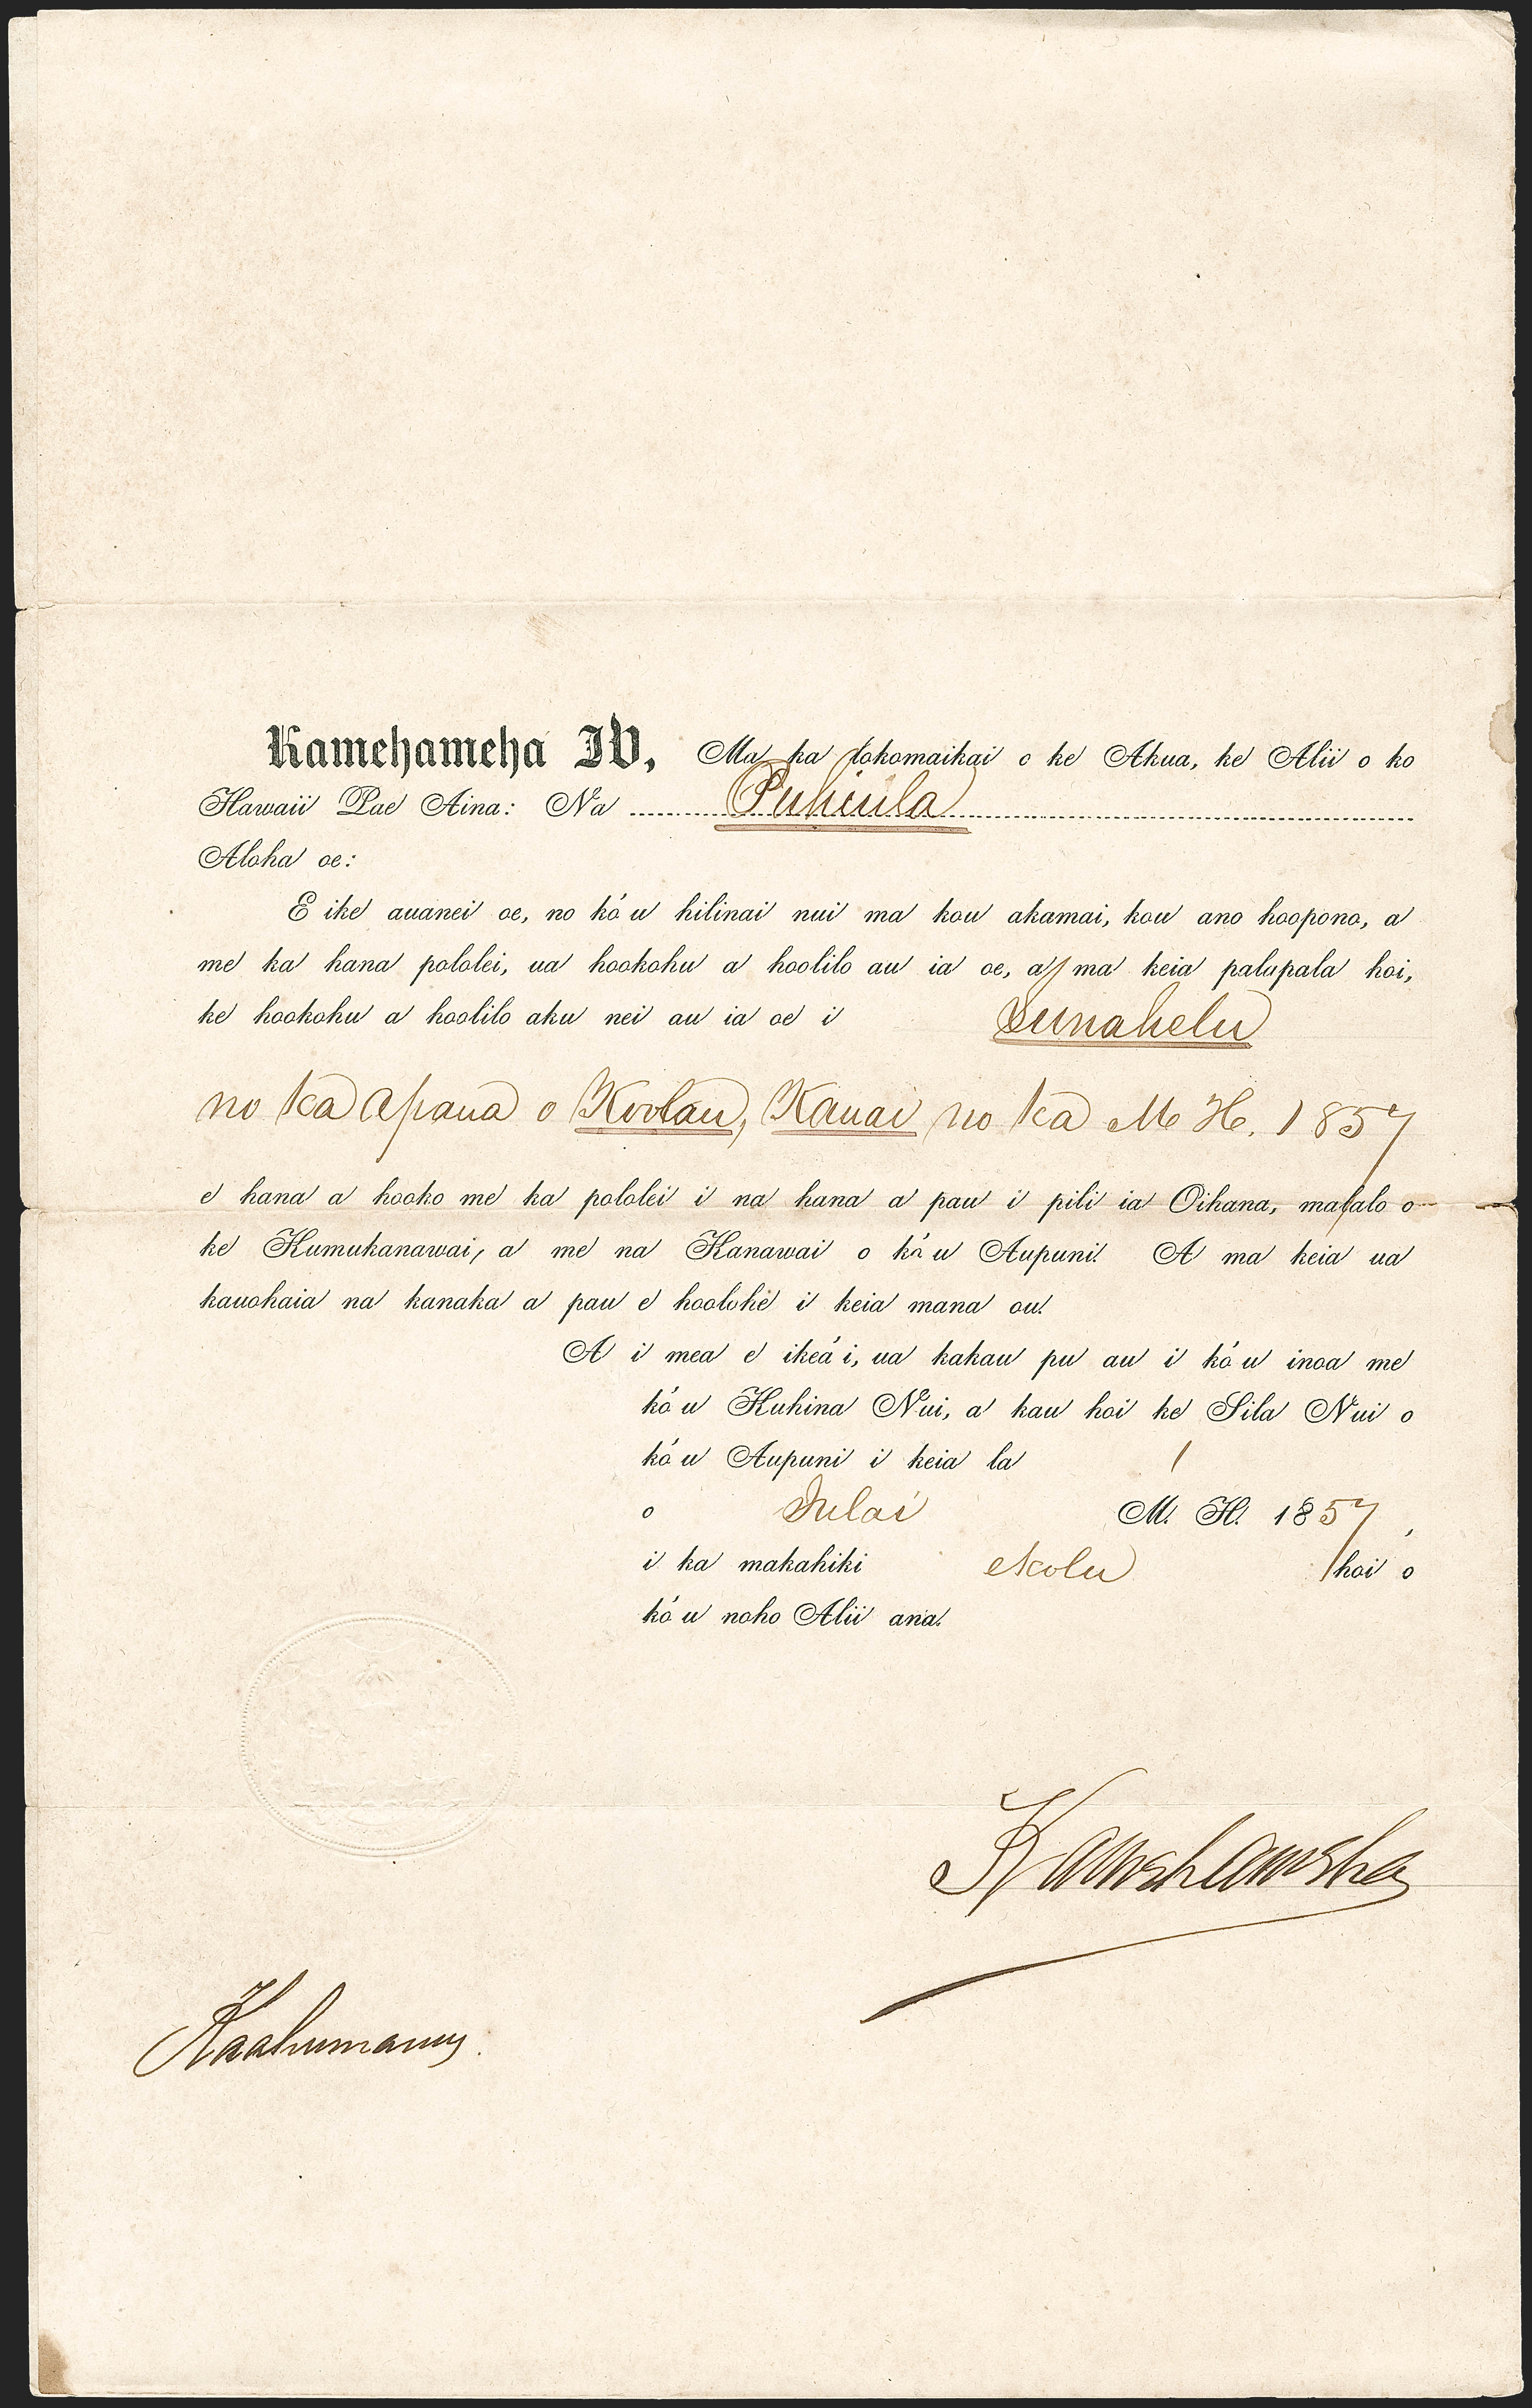 Kamehameha IV, Ma ka lokomaikai o ke Akua, ke Alii o ko
Hawaii Pae Aina: Na Puhiula
Aloha oe:
E ike auanei oe, no ko'u hilinai nui ma kou akamai, kou ano hoopono, a
me ka hana pololei, ua hookohu a hoolilo au ia oe, a ma keia palapala hoi,
ke hookohu a hoolilo aku nei au ia oe i Lunahelu
no ka Apana o Koolau, Kauai no ka M H. 1857
e hana a hooko me ka pololei i na hana a pau i pili ia Oihana, malalo o
ke Kumukanawai, a me na Kanawai o ko'u Aupuni. A ma keia ua
kauohaia na kanaka a pau e hoolohe i keia mana ou.
A i mea e ikea'i, ua kakau pu au i ko'u inoa me
ko'u Kuhina Nui, a kau hoi ke Sila Nui o
ko'u Aupuni i keia la 1
o Iulai M. H. 1857,
i ka makahiki ekolu hoi o
ko'u noho Alii ana.
Kamehameha
Kaahumanu.